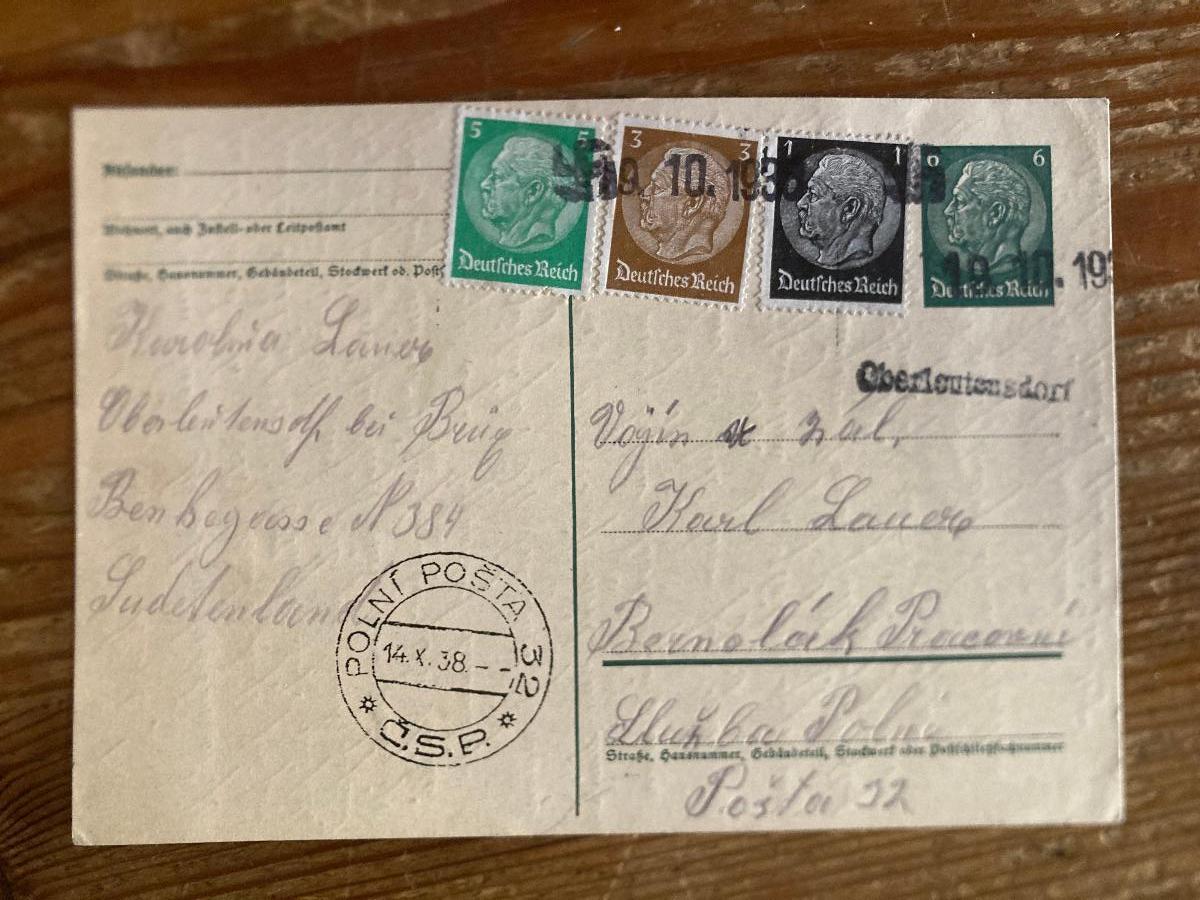 Absender:
Wohnort, auch Zustell- oder Leitpostamt
Straße, Hausnummer, Gebäudeteil, Stockwerk od. Post
Karolina Lauer
Oberleutensdf. bei Brüx
N 384
Sudetenland
POLNÍ POŠTA 32
14.X.38.--
Č.S.P.
5 5
Deutsches Reich
3 3
Deutsches Reich
1 1
Deutsches Reich
6 6
Deutsches Reich
19. 10. 1938
19. 10. 193
Oberleutensdorf
Vojín zál.
Karl Lauer
Bernolák Pracovní
Služba Polní
Straße, Hausnummer, Gebäudeteil, Stockwerk oder Postschließfachnummer
Pošta 32